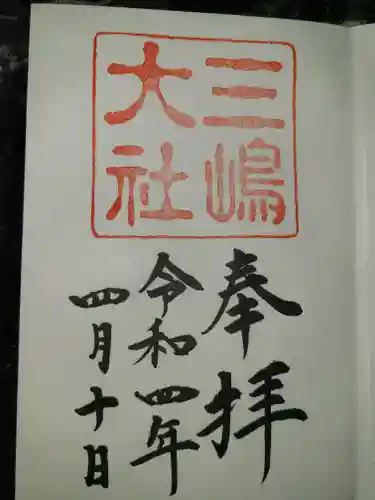 三嶋
大社
奉拝
令和四年
四月十日